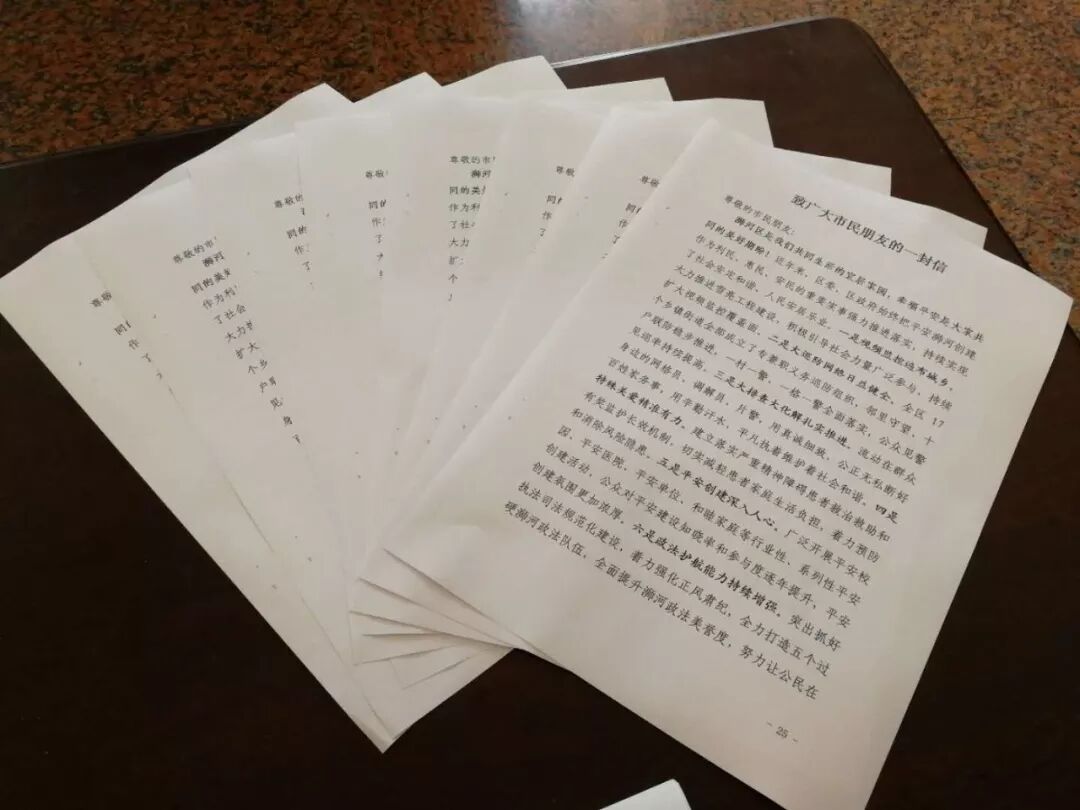 致广大市民朋友的一封信
尊敬的市民朋友:
浉河区是我们共同生活的宜居家园，幸福平安是大家共
同的美好期盼！近年来，区委、区政府始终把平安浉河创建
作为利民、惠民、安民的重要实事强力推进落实，持续实现
了社会安定和谐，人民安居乐业。一是视频监控遍布城乡。
大力推进雪亮工程建设，积极引导社会力量广泛参与，持续
扩大视频监控覆盖面。二是大巡防网络日益健全。全区 17
个乡镇街道全部成立了专兼职义务巡防组织，邻里守望、十
户联防稳步推进，一村一警、一格一警全面落实，公众见警
见巡率持续提高。三是大排查大化解扎实推进。活动在群众
身边的网格员、调解员、片警，用真诚细致、公正无私断好
百姓家务事，用辛勤汗水、平凡执着维护着社会和谐。四是
特殊关爱精准有力。建立落实严重精神障碍患者救治救助和
有奖监护长效机制，切实减轻患者家庭生活负担，着力预防
和消除风险隐患。五是平安创建深入人心。广泛开展平安校
园、平安医院、平安单位、和睦家庭等行业性、系列性平安
创建活动，公众对平安建设知晓率和参与度逐年提升，平安
创建氛围更加浓厚。六是政法护航能力持续增强。突出抓好
执法司法规范化建设，着力强化正风肃纪，全力打造五个过
硬浉河政法队伍，全面提升浉河政法美誉度，努力让公民在
- 25 -